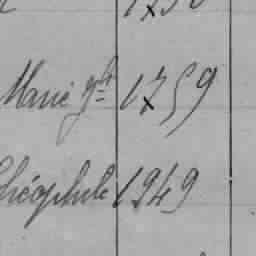 Marié gé 1759
Théophile 1949